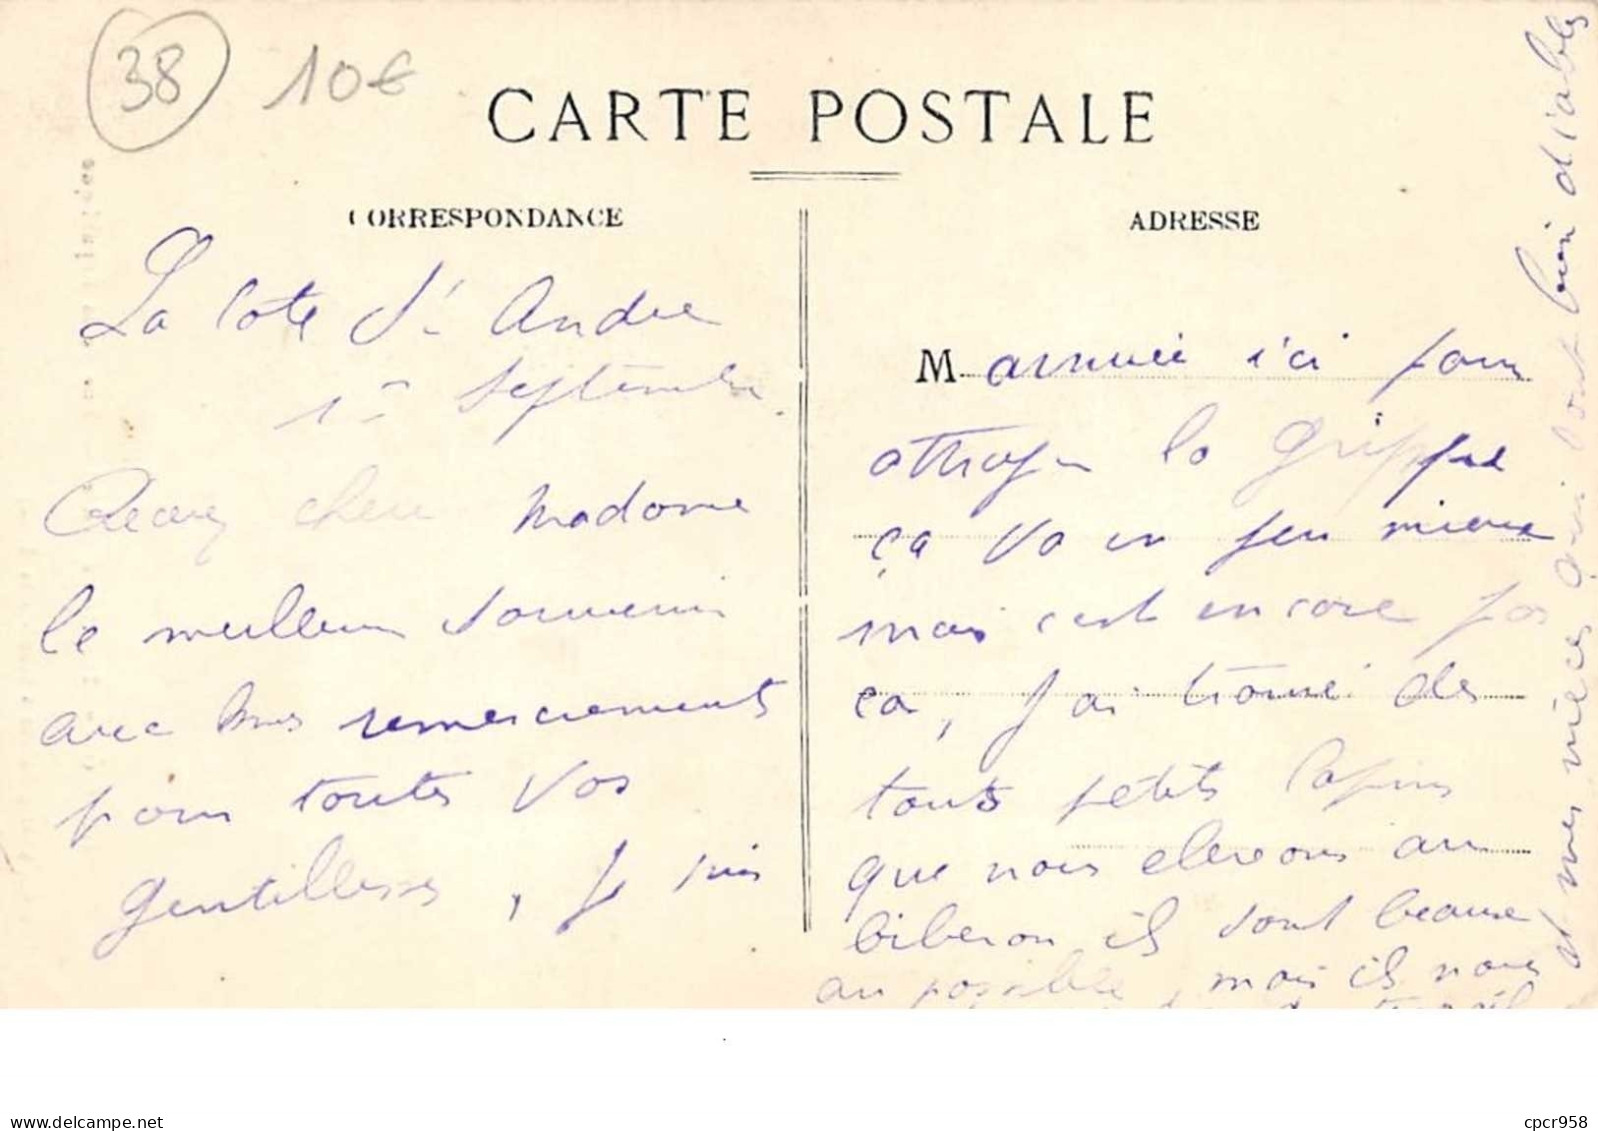 38 10€
CARTE POSTALE
CORRESPONDANCE
ADRESSE
La Cote St Andre
1er Septembre
Recevez chere Madame
le meilleur souvenir
avec mes remerciements
pour toutes vos
gentillesses, Je suis
M arrivée ici pour
attraper la Grippe
ça va un peu mieux
mais c'est encore pas
ça, J'ai trouvé des
touts petits lapins
que nous elevons au
biberon ils sont beaux
au possible, mais ils nous
et mes nièces qui sont bien diables
delcampe.net
cpcr958